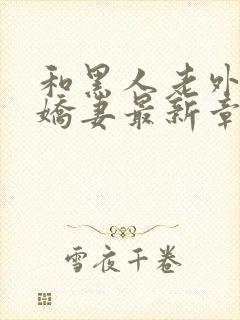 和黑人老外
娇妻最新章
雪夜千卷